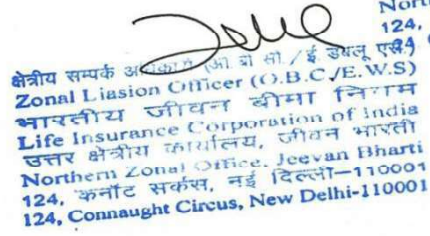 Nort
124,
क्षेत्रीय सम्पर्क अधिकारी (ओ बी सी / ई. डब्लू. एस)
Zonal Liasion Officer (O.B.C./E.W.S)
भारतीय जीवन बीमा निगम
Life Insurance Corporation of India
उत्तर क्षेत्रीय कार्यालय, जीवन भारती
Northern Zonal Office, Jeevan Bharti
124, कनॉट सर्कस, नई दिल्ली-110001
124, Connaught Circus, New Delhi-110001